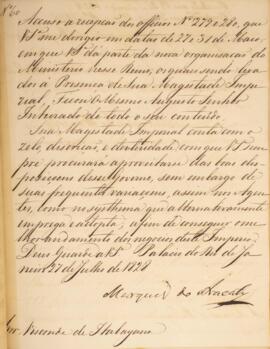 Nº 60
Accuso a recepção dos officios Nº 279 e 280, que
VSª me dirigio em datas de 27 e 31 de Março,
em que VSª dá parte da nova organisação do
Ministerio nesse Reino, os quaes sendo leva
dos á Presença de Sua Magestade Impe
rial, Ficou O Mesmo Augusto Senhor
Inteirado de todo o seu conteúdo.
Sua Magestade Imperial conta com o
zelo, descrição, e dexteridade, com que VSª sem
pre procurará aproveitar-se das boas dis
posiçoens desse Governo, sem embargo de
suas frequentes variaçoens, assim nos Agen
tes, como no systhema, que alternativamente
emprega e adopta, a fim de conseguir o me
lhor andamento dos negocios deste Imperio.
Deos Guarde a VSª Palacio do Rio de Ja
neiro 27 de Julho de 1828
Marquez do Aracaty
Snr. Visconde de Itabayana